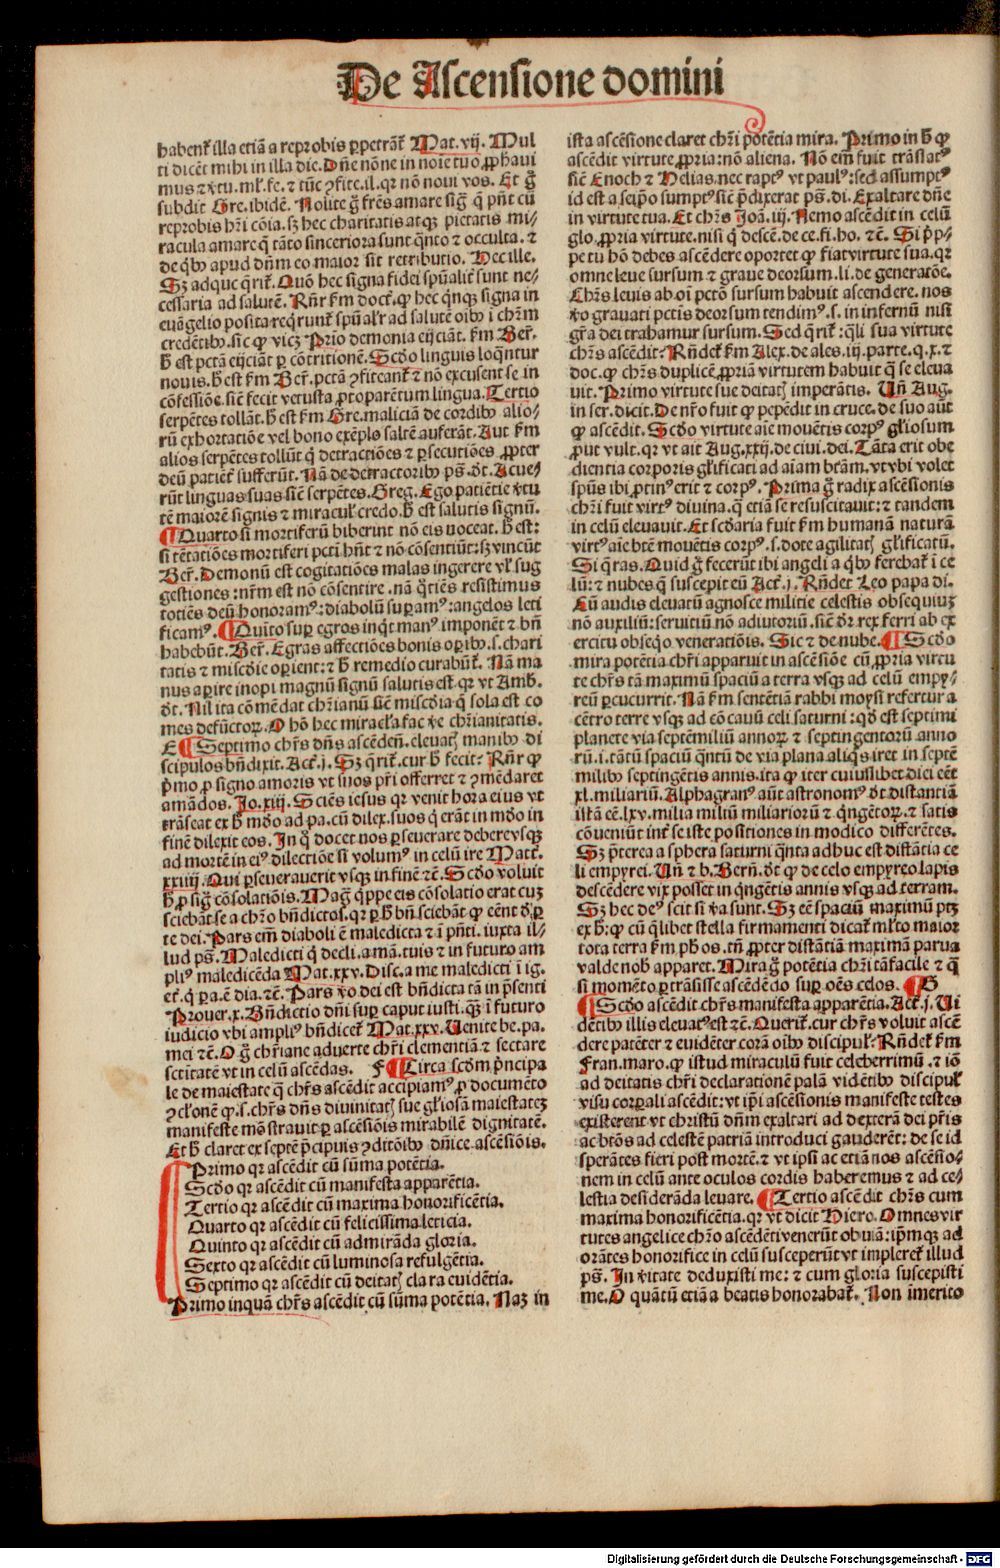 De Ascensione domini
habent̄ illa etiā a reprobis ꝑpetrāt̄ Mat.vij. Mul
ti dicēt mihi in illa die. Dn̄e nōne in noīe tuo ꝓphaui
mus ⁊ v̄tu. ml̄.fe. ⁊ tūc ꝯfite.il.qꝛ nō noui vos. Et ḡ
subdit Gre. ibidē. Nolite ḡ frēs amare siḡ q̄ pn̄t cū
reprobis hr̄i cōia. sꝫ hec charitatis atqꝫ pietatis mi/
racula amare q̄ tāto sinceriora sunt q̄nto ⁊ occulta. ⁊
de q̄bꝰ apud dn̄m eo maior sit retributio. Hec ille.
Sꝫ adque q̄rit̄. Quō hec signa fidei spūalit̄ sunt ne/
cessaria ad salutē. Rn̄r fm doct̄. ꝙ hec q̄nqꝫ signa in
euāgelio posita reqrunt̄ spūalr̄ ad salutē oibꝰ ī chr̄m
credētibꝰ. sic ꝙ vicꝫ Prīo demonia eijciāt. fm Ber̄.
h̄ est pctā eijciāt ꝑ cōtritionē. Scd̄o linguis loq̄ntur
nouis. h̄ est fm Ber̄. pctā ꝯfiteant̄ ⁊ nō excusent se in
cōfessiōe. sic̄ fecit vetusta ꝓtoparētum lingua. Tertio
serpētes tollāt. h̄ est fm Gre. maliciā de cordibꝰ alio/
rū exhortatiōe vel bono exēplo saltē auferāt. Aut fm
alios serpētes tollūt q̄ detractiōes ⁊ ꝑsecutiōes ꝓpter
deū patiēt̄ sufferūt. Nā de detractoribꝰ ps̄. d̄t. Acue/
rūt linguas suas sic̄ serpētes. Greg. Ego patiētie v̄tu
tē maiorē signis ⁊ miracul̄ credo. h̄ est salutis signū.
¶ Quarto si mortiferū biberint nō eis noceat. h̄ est:
si tētatiōes mortiferi pcti hn̄t ⁊ nō cōsentiūt: sꝫ vincūt
Ber̄. Demonū est cogitatiōes malas ingerere vl̄ sug
gestiones: nr̄m est nō cōsentire. nā q̄tiēs resistimus
totiēs deū honoramꝰ: diabolū suꝑamꝰ: angelos leti
ficamꝰ. ¶ Quīto suꝑ egros inq̄t manꝰ imponēt ⁊ bn̄
habebūt. Ber̄. Egras affectiōes bonis oꝑibꝰ. s. chari
tatis ⁊ miscd̄ie oꝑient: ⁊ h̄ remedio curabūt̄. Nā ma
nus aꝑire inopi magnū signū salutis est. qꝛ vt Amb.
d̄t. Nil ita cōmēdat chr̄ianū sic̄ miscd̄ia q̄ sola est co
mes defūctoꝝ. O hō hec miracl̄a fac v̄e chr̄ianitatis.
E ¶ Septimo chr̄s dn̄s ascēden̄. eleuatꝭ manibꝰ di
scipulos bn̄dixit. Act̄.j. Sꝫ q̄rit̄. cur h̄ fecit: Rn̄r ꝙ
p̄mo ꝓ signo amoris vt suos pr̄i offerret ⁊ ꝯmēdaret
amādos. Jo.xiij. Sciēs iesus qꝛ venit hora eius vt
trāseat ex h̄ mūdo ad pa. cū dilex. suos q̄ erāt in mūdo in
finē dilexit eos. In q̄ docet nos ꝑseuerare debere vsqꝫ
ad mortē in eiꝰ dilectiōe si volumꝰ in celū ire Matt̄.
xxiiij. Qui ꝑseuerauerit vsqꝫ in finē ⁊c̄. Scd̄o voluit
h̄ ꝓ sig̅ cōsolatiōis. Mag̅ q̄ppe eis cōsolatio erat cuꝫ
sciebāt se a chr̄o bn̄dictos. qꝛ ꝑ h̄ bn̄ sciebāt ꝙ eēnt d̄xꝑ
te dei. Pars em̄ diaboli ē maledicta ⁊ ī pn̄ti. iuxta il/
lud ps̄. Maledicti q̄ decli. a mā. tuis ⁊ in futuro am
pliꝰ maledicēda Mat.xxv. Disc. a me maledicti ī ig.
et̄. q̄ ꝑa. ē dia. ⁊c̄. Pars v̄o dei est bn̄dicta tā in p̄senti
Prouer.x. Bn̄dictio dn̄i suꝑ caput iusti. qꝫ ī futuro
iudicio vbi ampliꝰ bn̄dicet̄ Mat.xxv. Uenite be. pa.
mei ⁊c̄. O ḡ chr̄iane aduerte chr̄i clementiā ⁊ sectare
sctitatē vt in celū ascēdas. F ¶ Circa scd̄m p̄ncipa
le de maiestate q̄ chr̄s ascēdit accipiamꝰ ꝓ documēto
ꝯcl̄onē ꝙ. s. chr̄s dn̄s diuinitatꝭ sue gl̄iosā maiestateꝫ
manifeste mōstrauit ꝑ ascēsiōis mirabilē dignitatē.
Et h̄ claret ex septē p̄cipuis ꝯditōibꝰ dn̄ice ascēsiōis.
Primo qꝛ ascēdit cū sūma potētia.
Scd̄o qꝛ ascēdit cū manifesta apparētia.
Tertio qꝛ ascēdit cū maxima honorificētia.
Quarto qꝛ ascēdit cū felicissima leticia.
Quinto qꝛ ascēdit cū admirāda gloria.
Sexto qꝛ ascēdit cū luminosa refulgētia.
Septimo qꝛ ascēdit cū deitatꝭ clara euidētia.
Primo inquā chr̄s ascēdit cū sūma potētia. Naꝫ in
ista ascēsione claret chr̄i potētia mira. Primo in h̄ ꝙ
ascēdit virtute ꝓpria: nō aliena. Nō em̄ fuit trāslatꝰ
sic̄ Enoch ⁊ Helias. nec raptꝰ vt paulꝰ: sed assumptꝰ
id est a seip̄o sumptꝰ sic̄ p̄dixerat ps̄. di. Exaltare dn̄e
in virtute tua. Et chr̄s Joā.iij. Nemo ascēdit in celū
glo. ꝓpria virtute. nisi q̄ descē. de ce. fi. ho. ⁊c̄. Si p̄p/
pe tu hō debes ascēdere oportet ꝙ fiat virtute sua. qꝛ
omne leue sursum ⁊ graue deorsum. li. de generatōe.
Chr̄s leuis ab oī pctō sursum habuit ascendere. nos
v̄o grauati pctis deorsum tendimꝰ. s. in infernū nisi
gr̄a dei trahamur sursum. Sed q̄rit̄: q̄li sua virtute
chr̄s ascēdit: Rn̄det̄ fm Alex. de ales. iij. parte. q. x. ⁊
doc. ꝙ chr̄s duplicē ꝓpriā virtutem habuit q̄ se eleua
uit. Primo virtute sue deitatꝭ imperātis. Un̄ Aug.
in ser. dicit. De nr̄o fuit ꝙ pepēdit in cruce. de suo aūt
ꝙ ascēdit. Scd̄o virtute aīe mouētis corpꝰ gl̄iosum
ꝓut vult. qꝛ vt ait Aug. xxij. de ciui. dei. Tāta erit obe
dientia corporis gl̄ificati ad aīam btām. vt vbi volet
spūs ibi ꝓtinꝰ erit ⁊ corpꝰ. Prima ḡ radix ascēsionis
chr̄i fuit virtꝰ diuina. q̄ etiā se resuscitauit: ⁊ tandem
in celū eleuauit. Et scd̄aria fuit fm humanā naturā
virtꝰ aīe btē mouētis corpꝰ. s. dote agilitatꝭ gl̄ificatū.
Si q̄ras. Quid ḡ fecerūt ibi angeli a q̄bꝰ ferebat̄ ī ce
lū: ⁊ nubes q̄ suscepit eū Act̄.j. Rn̄det Leo papa di.
Cū audis eleuatū agnosce militie celestis obsequiuꝫ
nō auxiliū: seruitiū nō adiutoriū. sic̄ d̄r rex ferri ab ex
ercitu obseq̄o veneratiōis. Sic ⁊ de nube. ¶ Scd̄o
mira potētia chr̄i apparuit in ascēsiōe cū ꝓpria virtu
te chr̄s tā maximū spaciū a terra vsqꝫ ad celū empy/
reū ꝑcucurrit. Nā fm sentētiā rabbi moysi refertur a
cētro terre vsqꝫ ad cōcauū celi saturni: qd̄ est septimi
planete via septēmiliū annoꝝ ⁊ septingentorū anno
rū. i. tātū spaciū q̄ntū de via plana aliq̄s iret in septē
milibꝰ septingētis annis. ita ꝙ iter cuiuslibet diei cēt
xl. miliariū. Alphagranꝰ aūt astronomꝰ d̄t distantiā
istā eē. lxv. milia miliū miliariorū ⁊ q̄ngētoꝝ. ⁊ satis
cōueniūt int̄ se iste positiones in modico differētes.
Sꝫ p̄terea a sphera saturni q̄nta adhuc est distātia ce
li empyrei. Un̄ ⁊ b. Bern̄. d̄t ꝙ de celo empyreo lapis
descēdere vix posset in q̄ngētis annis vsqꝫ ad terram.
Sꝫ hec deꝰ scit si v̄a sunt. Sꝫ eē spaciū maximū ptꝫ
ex h̄: ꝙ cū q̄libet stella firmamenti dicat̄ ml̄to maior
tota terra fm ph̄os. tn̄ ꝓpter distātiā maximā parua
valde nob̄ apparet. Mira ḡ potētia chr̄i tā facile ⁊ q̄si
si momēto ꝑtrāsisse ascēdēdo suꝑ oēs celos. ¶ G
¶ Scd̄o ascēdit chr̄s manifesta apparētia. Act̄.j. Ui
dētibꝰ illis eleuatꝰ est ⁊c̄. Querit̄. cur chr̄s voluit ascē
dere patēter ⁊ euidēter corā oibꝰ discipul̄: Rn̄det̄ fm
Fran. maro. ꝙ istud miraculū fuit celeberrimū. ⁊ iō
ad deitatis chr̄i declarationē palā vidētibꝰ discipul̄
visu corꝑali ascēdit: vt ip̄i ascēsionis manifeste testes
existerent vt christū dn̄m exaltari ad dexterā dei pr̄is
ac btōs ad celestē patriā introduci gauderēt: de se id
sperātes fieri post mortē. ⁊ vt ipsi ac etiā nos ascēsio/
nem in celū ante oculos cordis haberemus ⁊ ad ce/
lestia desiderāda leuare. ¶ Tertio ascēdit chr̄s cum
maxima honorificētia. qꝛ vt dicit Hiero. Omnes vir
tutes angelice chr̄o ascēdēti venerūt obuiā: ip̄mqꝫ ad
orātes honorifice in celū susceperūt vt implereť illud
ps̄. In v̄itate deduxisti me: ⁊ cum gloria suscepisti
me. O quātū etiā a beatis honorabat̄. Non īmerito
Digitalisierung gefördert durch die Deutsche Forschungsgemeinschaft - DFG